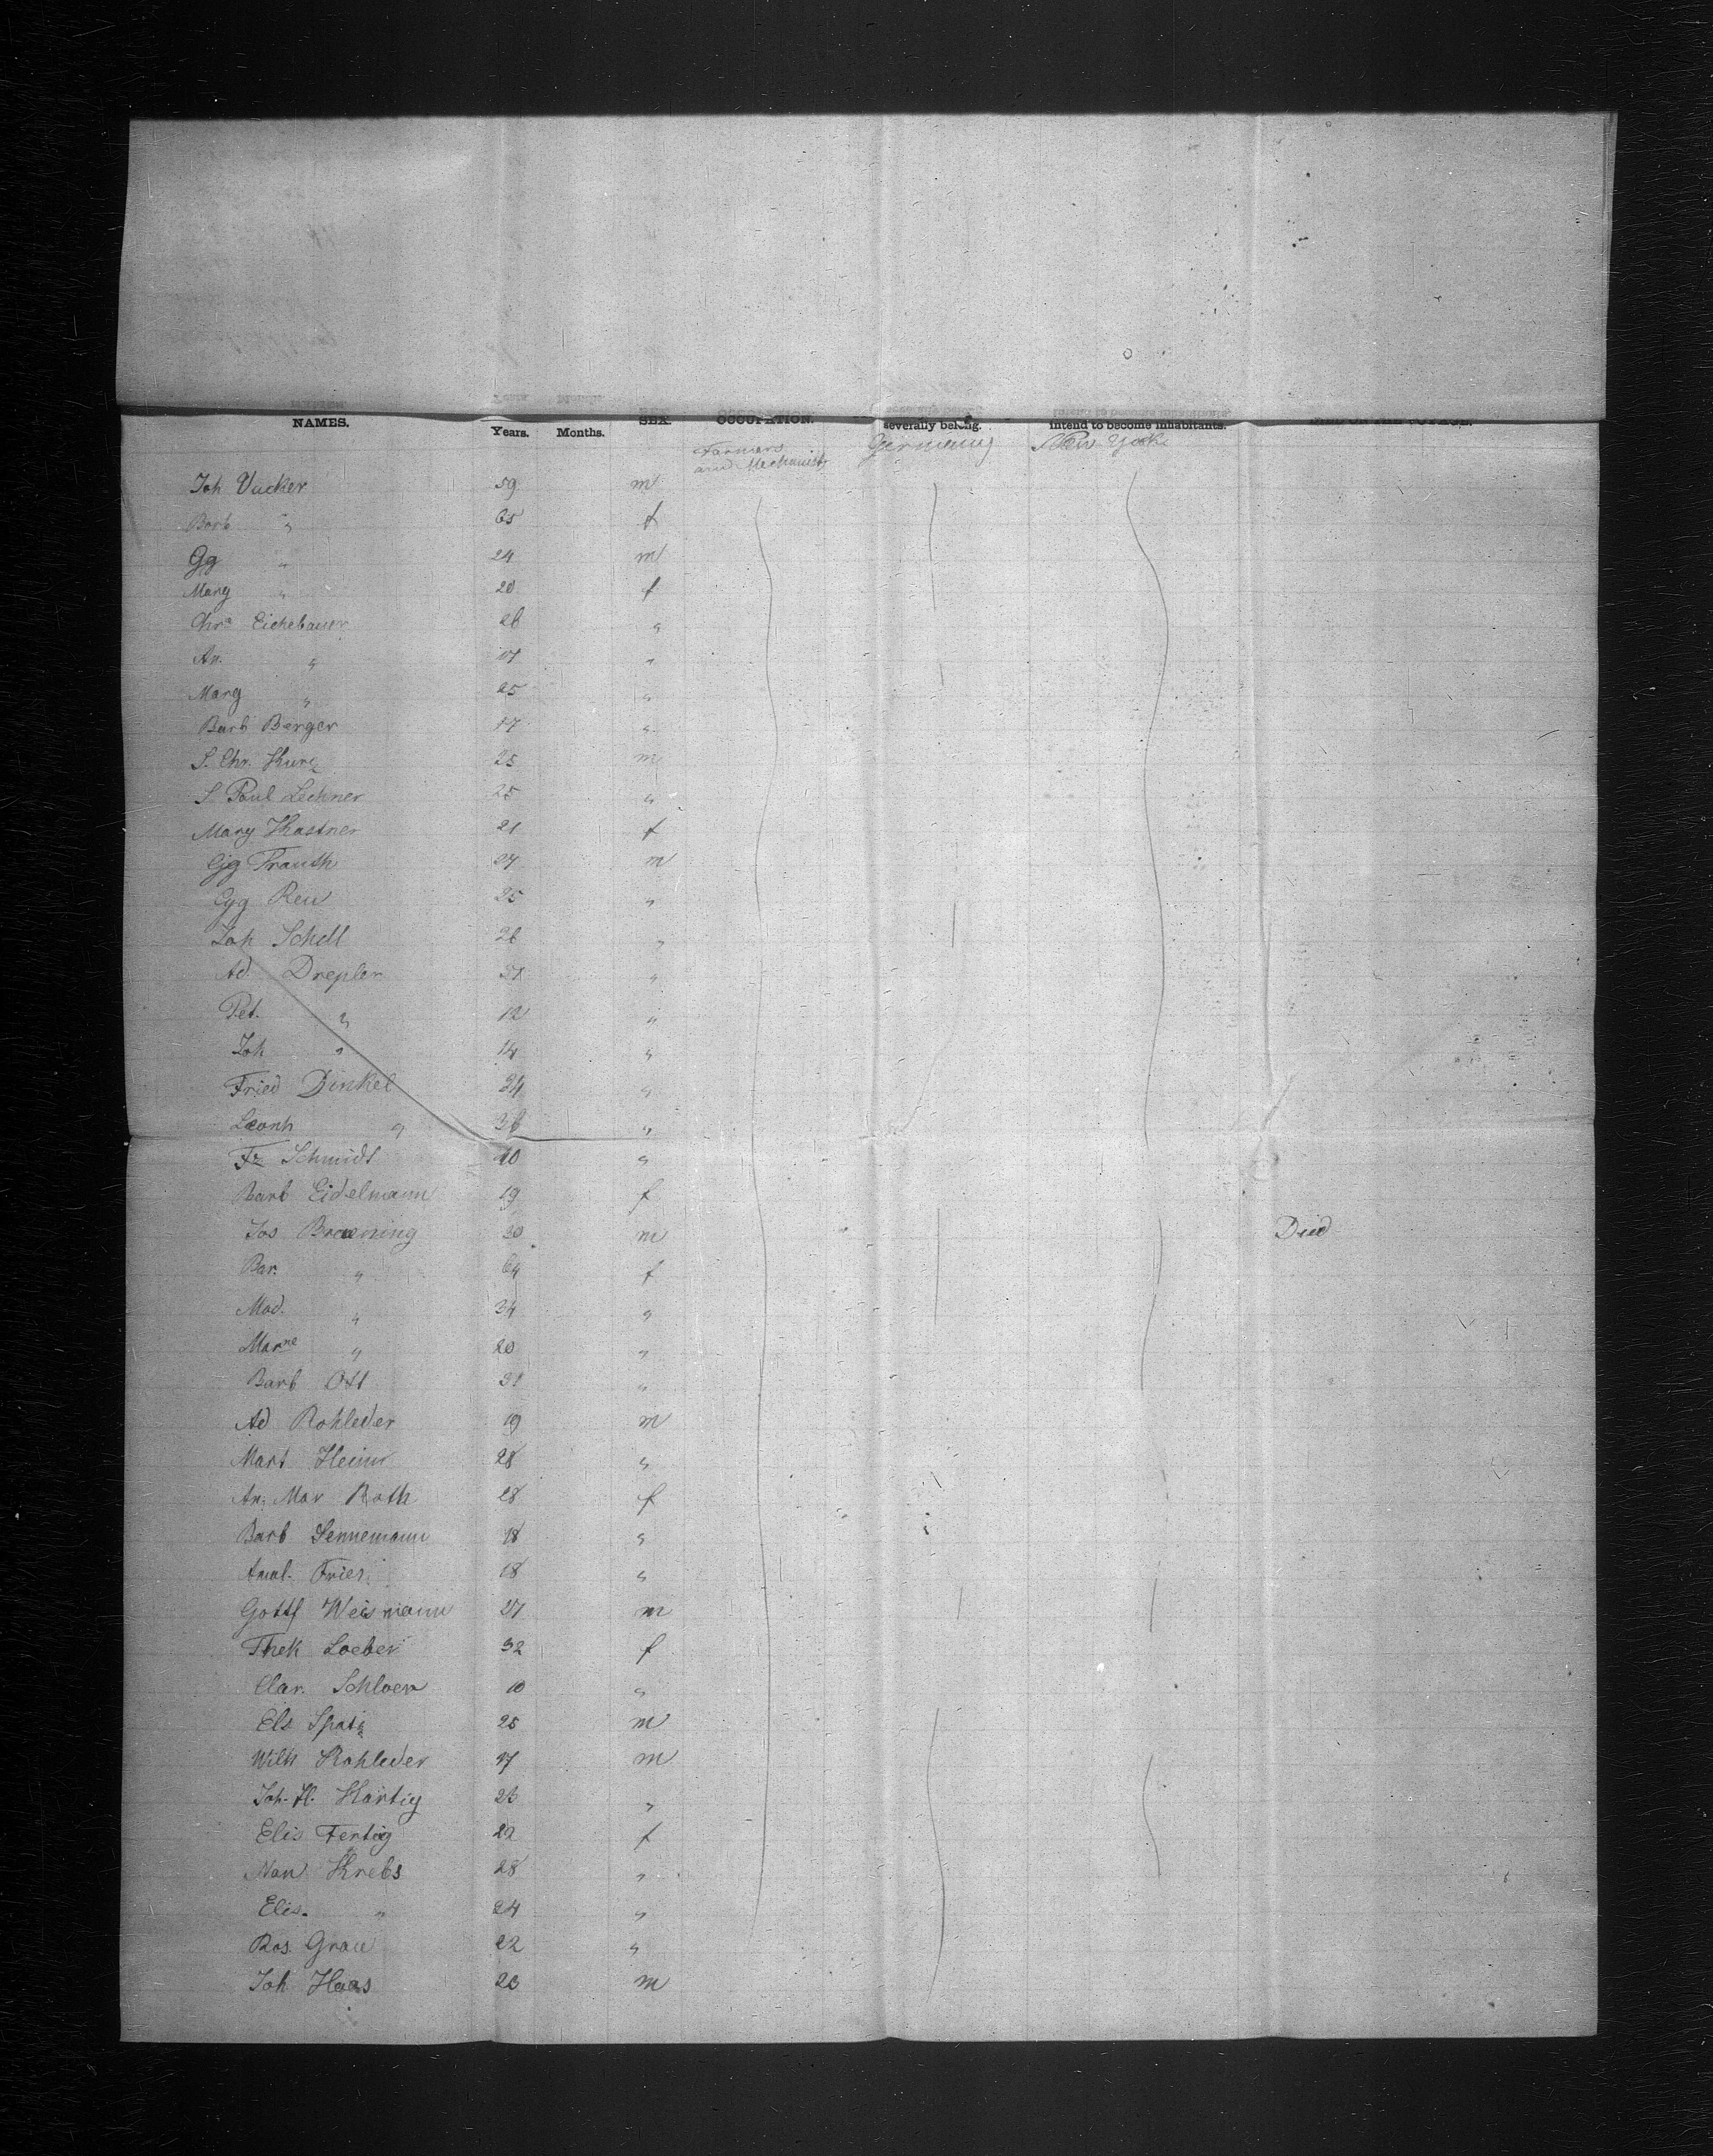 NAMES. Years. Months. SEX. OCCUPATION. severally belong. intend to become inhabitants. DIED ON THE VOYAGE.
Farmers and Mechanists Germany New York
Joh Vucker 59 m
Barb " 65 f
Gg " 24 m
Marg " 20 f
Chra Eichebauer 26 "
An. " 17 "
Marg " 25 "
Barb Berger 17 "
S. Chr. Kurz 25 m
S Paul Lechner 25 "
Marg Kastner 21 f
Gg Frauth 27 m
Gg Reu 25 "
Joh Schell 26 "
Ad. Drepler "
Pet. " 12 "
Joh " 14 "
Fried Dinkel 34 "
Leonh " 36 "
Fz Schmidt "
Barb Eidelmann 19 f
Jos Braeuning 30 m Died
Bar. " 64 f
Mad. " 34 "
Marne " 20 "
Barb Ott 31 "
Ad Rohleder 19 m
Mart Heim 28 "
An. Mar Roth 28 f
Barb Sennemann 18 "
Amal. Fries 18 "
Gottf Weismann 27 m
Thek Loeber 32 f
Clar. Schloer 10 "
Els Spatz 25 m
Wilh Rohleder 17 m
Joh. H. Hartig 23 "
Elis Fertig 22 f
Nan Krebs 28 "
Elis. " 24 "
Ros. Grau 22 "
Joh Haas 20 m